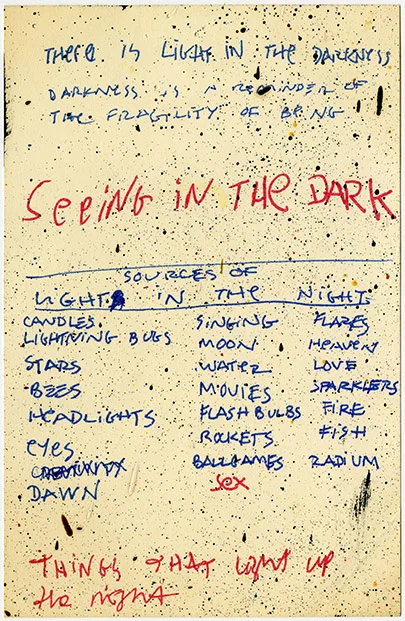 THERE IS LIGHT IN THE DARKNESS
DARKNESS IS A REMINDER OF
THE FRAGILITY OF BEING
SeeiNG iN THe DARK
SOURCES OF
LIGHTS IN THE NIGHT
CANDLES
LIGHTNING BUGS
STARS
BEES
HEADLIGHTS
eyes
DAWN
SINGING
MOON
WATER
MOVIES
FLASH BULBS
ROCKETS
BALLGAMES
Sex
FLARES
HEAVEN
LOVE
SPARKLERS
FIRE
FISH
RADIUM
THINGS THAT LIGHT UP
the night